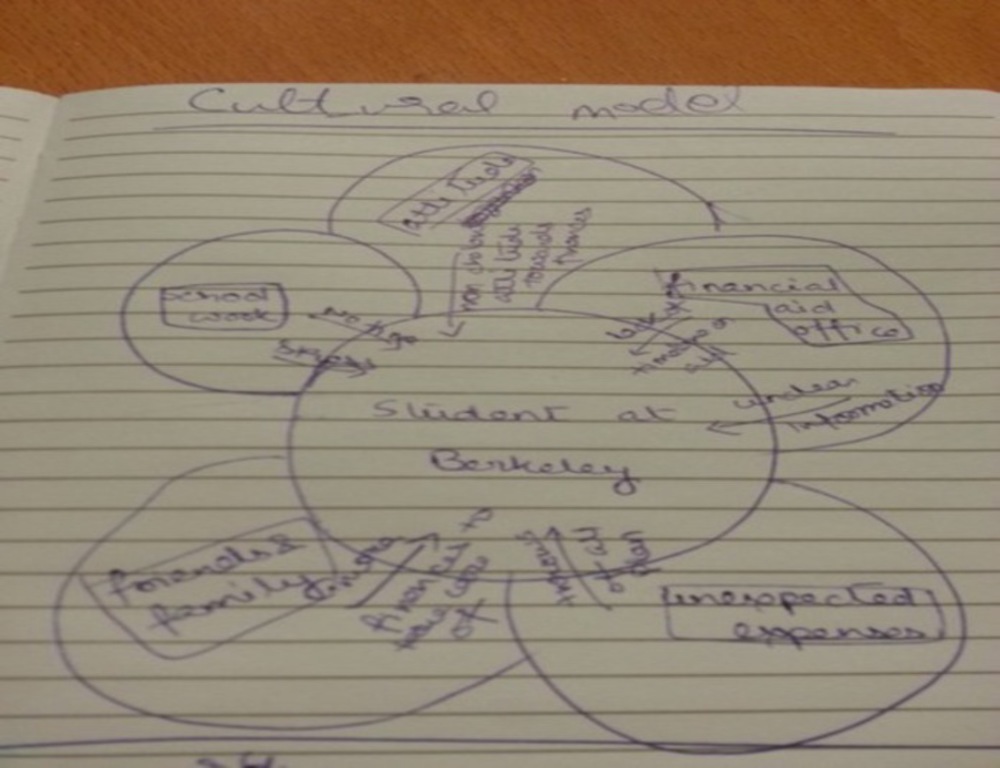 Cultural model
attitude
non chalant
attitude
towards
finances
school
work
No time
Stress
financial
aid
office
lack of
time or
unclear
information
Student at
Berkeley
friends &
family
finances
take care
of
throws
off
plan
unexpected
expenses